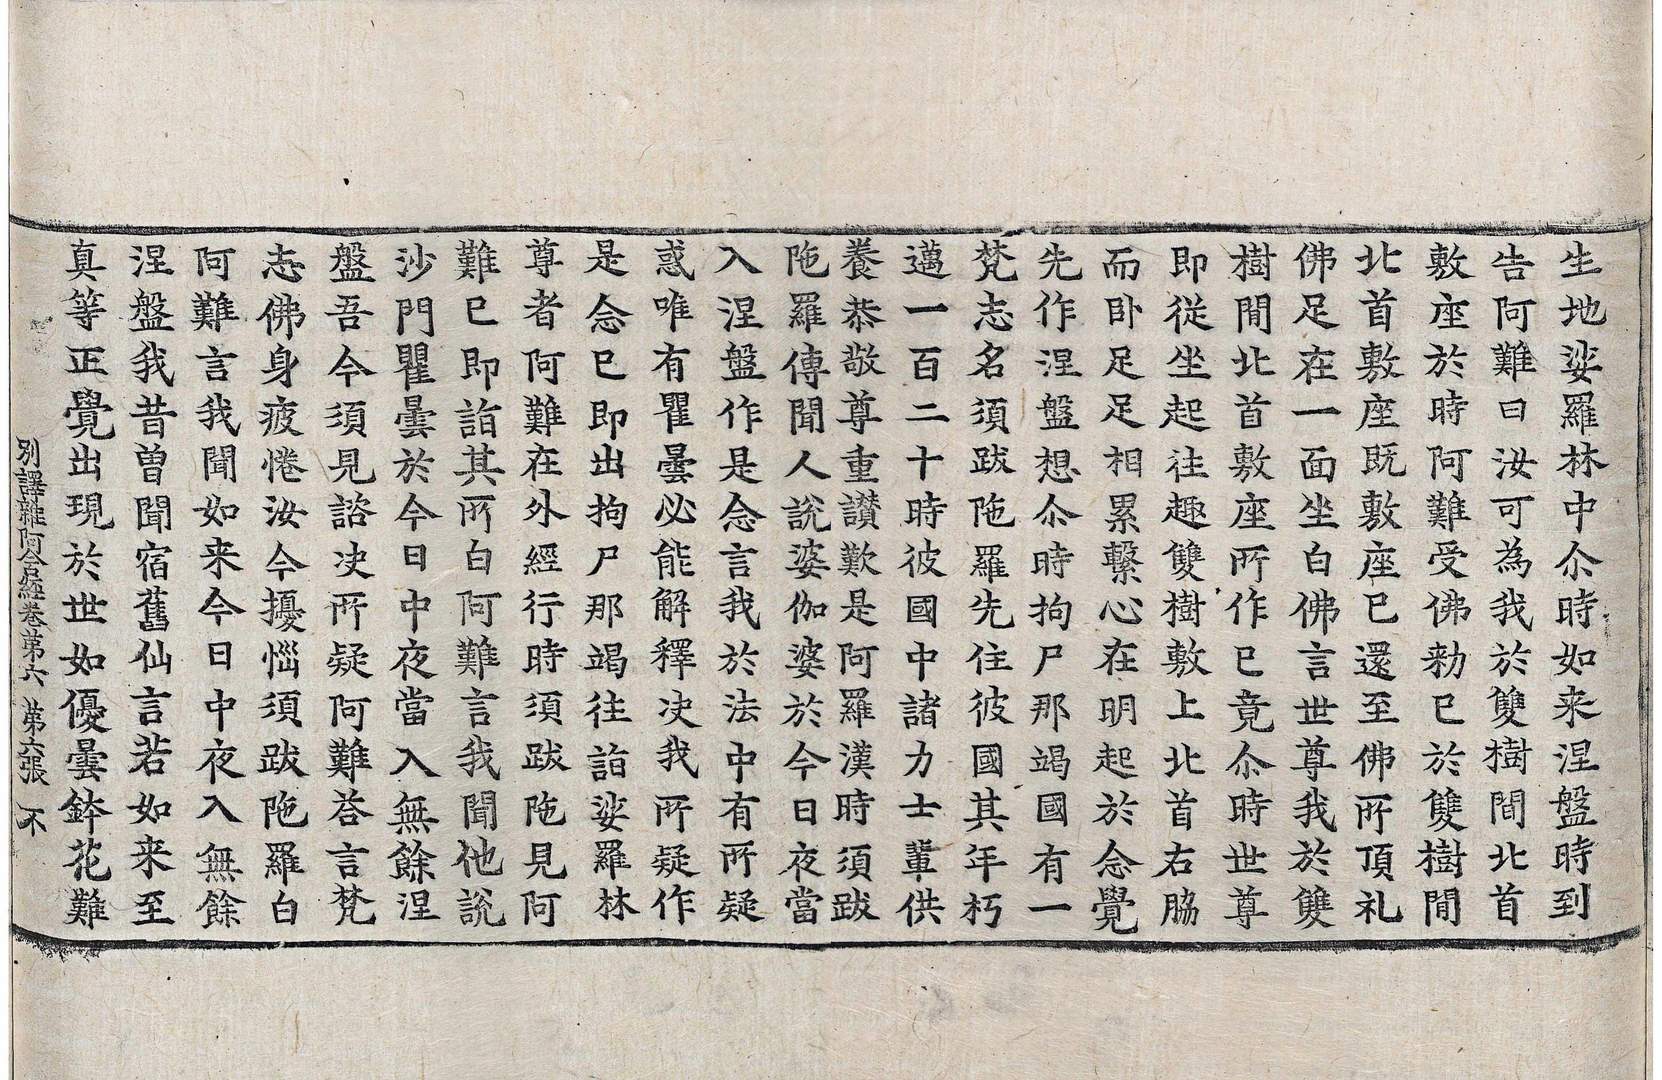 生地娑羅林中尒時如来涅盤時到
告阿難曰汝可為我於雙樹間北首
敷座於時阿難受佛勑已於雙樹間
北首敷座既敷座已還至佛所頂礼
佛足在一面坐白佛言世尊我於雙
樹間北首敷座所作已竟尒時世尊
即從坐起往趣雙樹敷上北首右脇
而卧足足相累繫心在明起於念覺
先作涅盤想尒時拘尸那竭國有一
梵志名須跋陁羅先住彼國其年朽
邁一百二十時彼國中諸力士輩供
養恭敬尊重讃歎是阿羅漢時須跋
陁羅傳聞人說婆伽婆於今日夜當
入涅盤作是念言我於法中有所疑
惑唯有瞿曇必能解釋决我所疑作
是念已即出拘尸那竭往詣娑羅林
尊者阿難在外經行時須跋陁見阿
難已即詣其所白阿難言我聞他說
沙門瞿曇於今日中夜當入無餘涅
盤吾今須見諮决所疑阿難荅言梵
志佛身疲惓汝今擾惱須跋陁羅白
阿難言我聞如来今日中夜入無餘
涅盤我昔曾聞宿舊仙言若如来至
真等正覺出現於世如優曇鉢花難
別譯雜阿含經卷第六 第六張 不